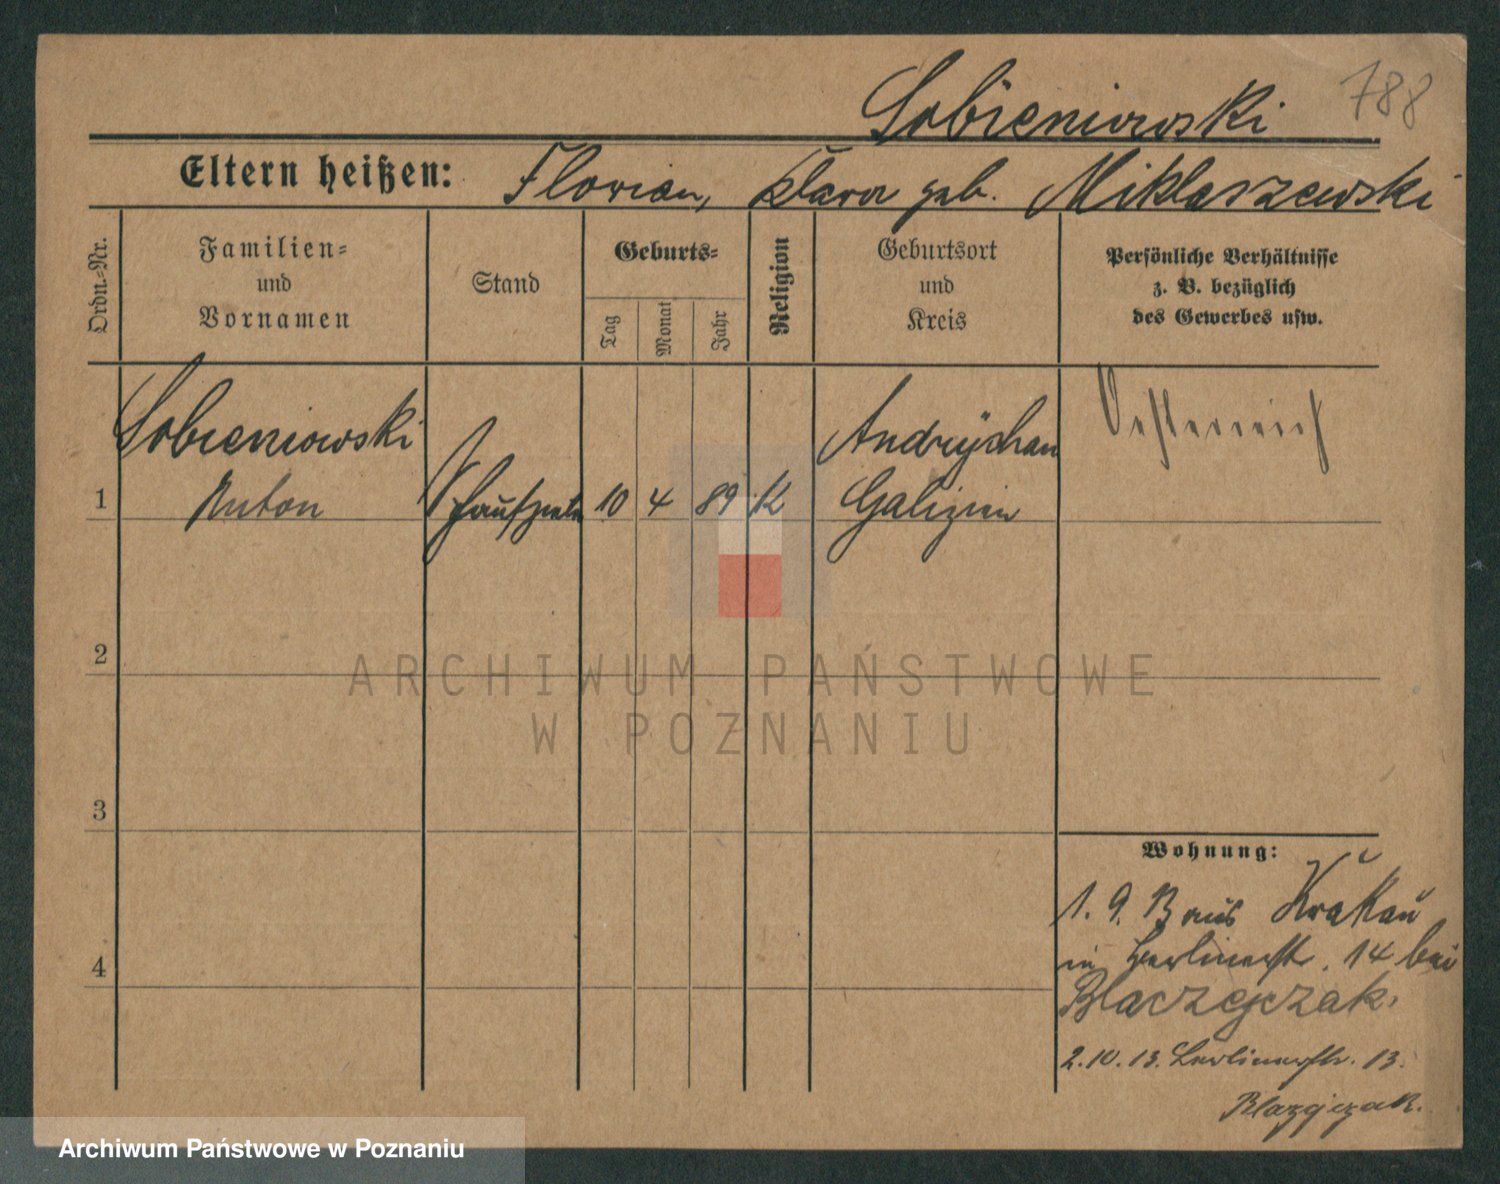 788
Sobieniowski
Eltern heißen: Florian, Klara geb. Miklaszewski
Ordn.-Nr.
Familien-
und
Vornamen
Stand
Geburts-
Tag
Monat
Jahr
Religion
Geburtsort
und
Kreis
Persönliche Verhältnisse
z. B. bezüglich
des Gewerbes usw.
Sobieniowski
Anton
1
Schauspieler
10 4 89 K
Andrychau
Galizien
Oesterreich
2
3
4
ARCHIWUM PAŃSTWOWE
W POZNANIU
Wohnung:
1. 9. 13 aus Krakau
in Berlinerstr. 14 bei
Blaczejczak.
2. 10. 13. Berlinerstr. 13.
Blazejczak.
Archiwum Państwowe w Poznaniu